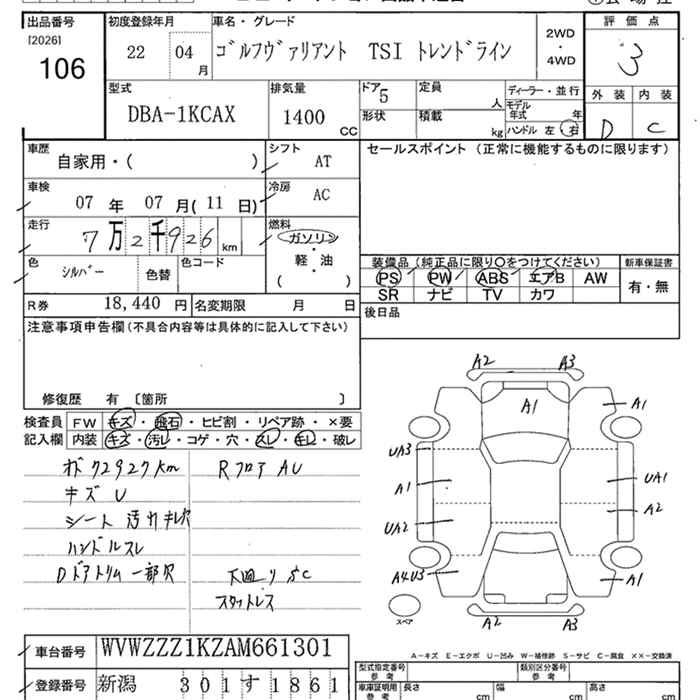 出品番号 初度登録年月 車名・グレード 評価点
[2026]
106
22 04 月 ゴルフヴァリアント TSI トレンドライン 2WD・4WD 3
型式 排気量 ドア 5 定員 人 ディーラー・並行 外装 内装
DBA-1KCAX 1400 CC 形状 積載 kg モデル年式 年 ハンドル 左 右 D C
車歴 自家用・( ) シフト AT セールスポイント (正常に機能するものに限ります)
車検 07 年 07 月( 11 日) 冷房 AC
走行 7万2千926 km 燃料 ガソリン・軽・油 ( )
色 シルバー 色替 色コード
装備品 (純正品に限り○をつけてください) 新車保証書
PS PW ABS エアB AW 有・無
SR ナビ TV カワ
R券 18,440 円 名変期限 月 日 後日品
注意事項申告欄 (不具合内容等は具体的に記入して下さい)
修復歴 有 〔箇所 〕
検査員記入欄 FW キズ・飛石・ヒビ割・リペア跡・×要
内装 キズ・汚レ・コゲ・穴・スレ・キレ・破レ
72927km RフロアAU
キズU
シート 汚れ キレ穴
ハンドルスレ
Dドアトリム一部欠 下回りSC
スタットレス
A2 A3
A1 A1
UA3
A1 UA1
A2
UA2
A4U3 A1
スペア A2 A3
車台番号 WVWZZZ1KZAM661301
A-キズ E-エクボ U-凹み W-補修跡 S-サビ C-腐食 XX-交換済
登録番号 新潟 301 す 1861
型式指定番号 参考 類別区分番号 参考
車庫証明用 参考 長さ cm 幅 cm 高さ cm